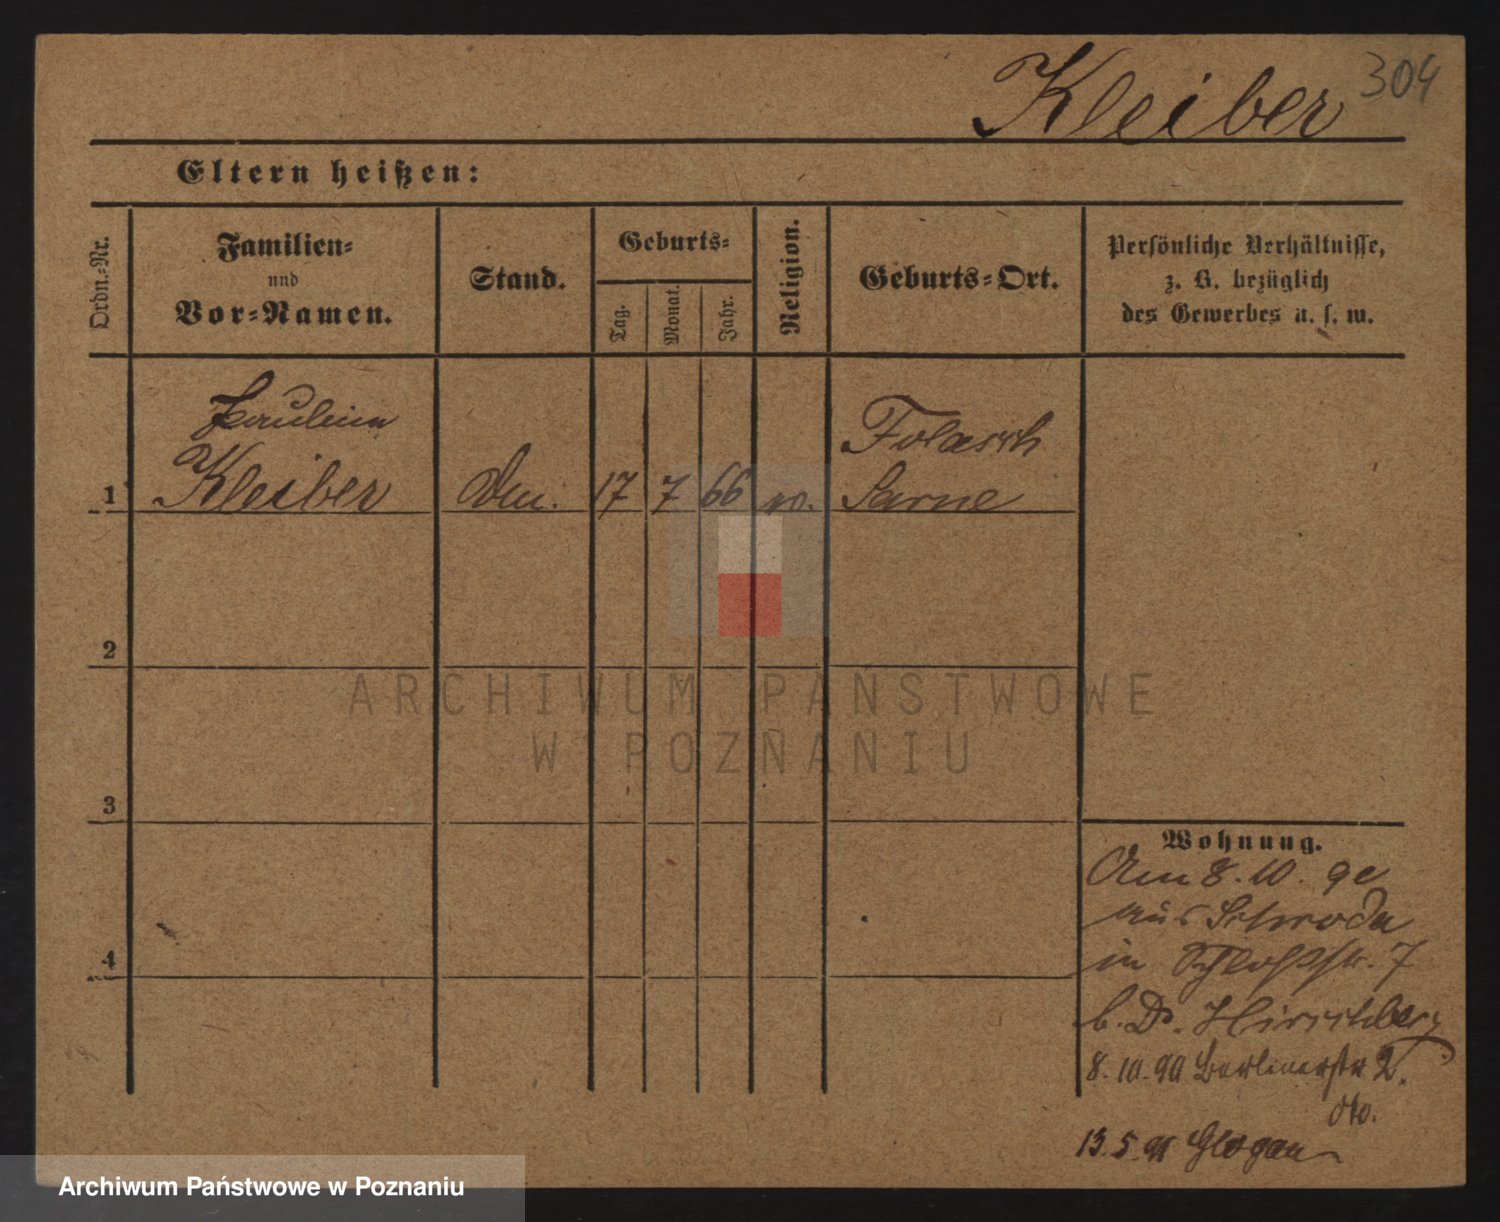 Kleiber 304
Eltern heißen:
Ordn.-Nr.
Familien-
und
Vor-Namen.
Stand.
Geburts-
Tag.
Monat.
Jahr.
Religion.
Geburts-Ort.
Persönliche Verhältnisse,
z. B. bezüglich
des Gewerbes u. s. w.
1
Kleiber
17
7
66
Sarne
2
ARCHIWUM PAŃSTWOWE
W POZNANIU
3
Wohnung.
Am 8.10. 90
aus Schroda
4
in Schloßstr. 7
b. Dr. Hirschberg
8.10.90 Berlinerstr 2.
dto.
13.5.91 Glogau
Archiwum Państwowe w Poznaniu